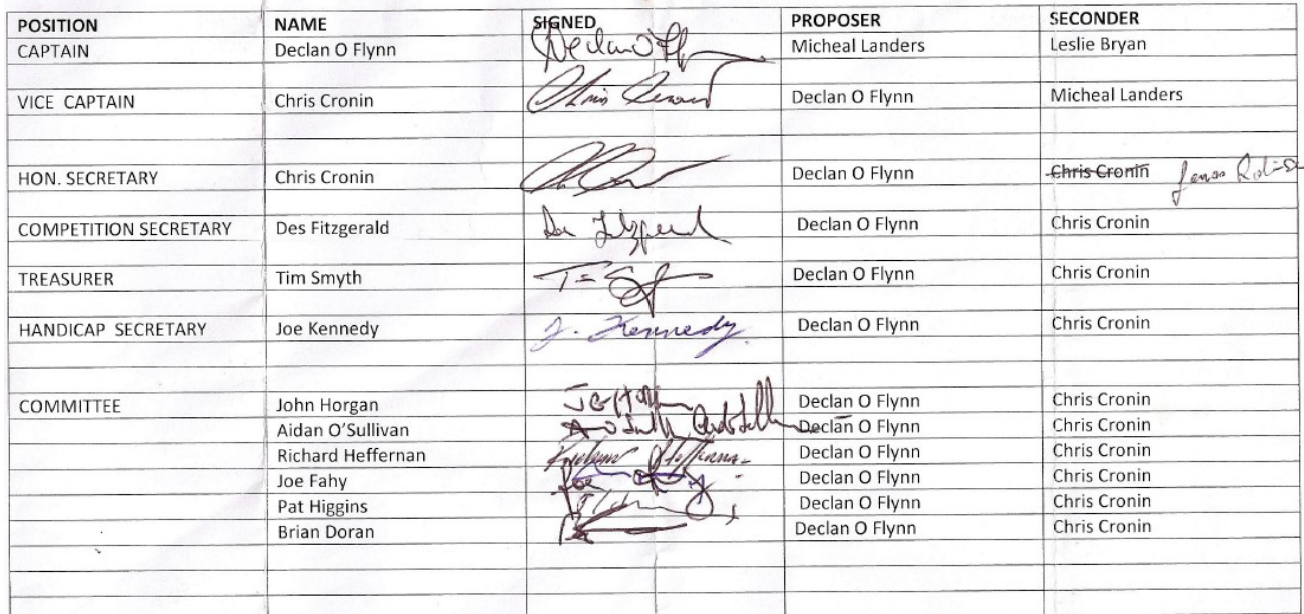 POSITION NAME SIGNED PROPOSER SECONDER
CAPTAIN Declan O Flynn Declan O Fl Micheal Landers Leslie Bryan
VICE CAPTAIN Chris Cronin Chris Cronin Declan O Flynn Micheal Landers
HON. SECRETARY Chris Cronin Declan O Flynn Chris Cronin
COMPETITION SECRETARY Des Fitzgerald Des Fitzgerald Declan O Flynn Chris Cronin
TREASURER Tim Smyth Declan O Flynn Chris Cronin
HANDICAP SECRETARY Joe Kennedy J. Kennedy Declan O Flynn Chris Cronin
COMMITTEE John Horgan Declan O Flynn Chris Cronin
Aidan O'Sullivan Declan O Flynn Chris Cronin
Richard Heffernan Richard Heffernan Declan O Flynn Chris Cronin
Joe Fahy Joe Declan O Flynn Chris Cronin
Pat Higgins Declan O Flynn Chris Cronin
Brian Doran Declan O Flynn Chris Cronin